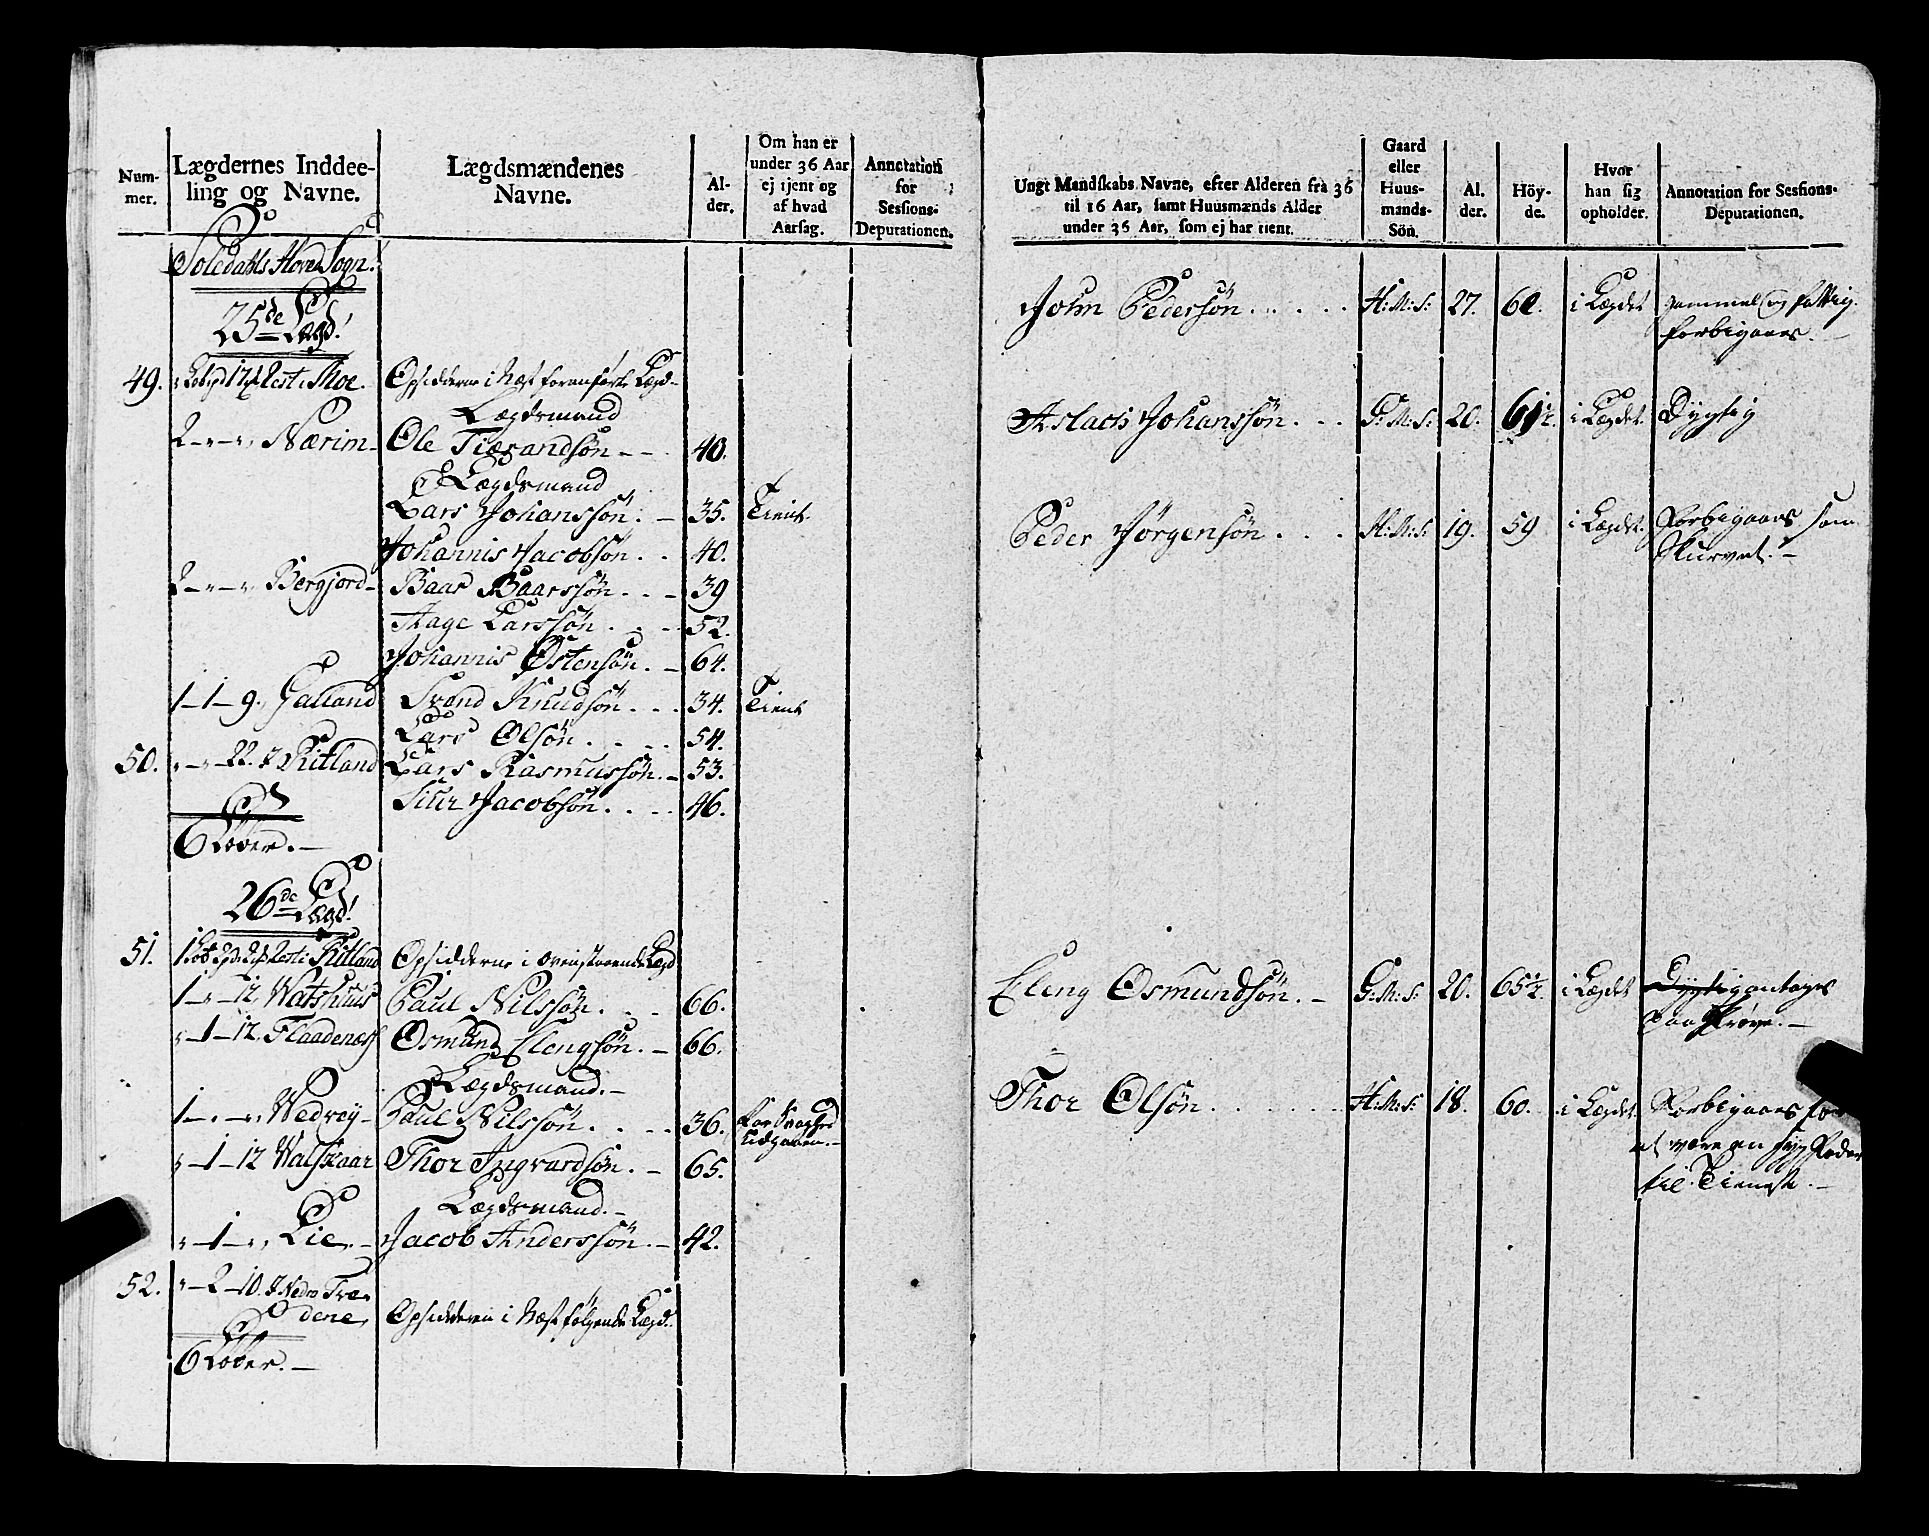 Num-
mer.
Lægdernes Inddee-
ling og Navne.
Lægdsmændenes
Navne.
Al-
der.
Om han er
under 36 Aar
ej tjent og
af hvad
Aarsag.
Annotation
for
Sessions-
Deputationen.
Hoved Sogn.
25de Lægd!
49. Rest i Thoe. Opsidderne i Næst foranførte Lægd
Lægdsmand
2 Nærim Ole Tiærandsön 40.
Lægdsmand
Lars Johanssön. 35. Tient
Johannis Jacobsön 40.
2 Bergjord Baar Baarssön 39
Aage Larssön 52.
Johannis Østensön. 64.
1-1-9. Galland Svend Knudsön 34. Tient
Lars Olsön 54.
50. 22. i Ritland Lars Rasmussön. 53.
Siur Jacobsön 46.
6 Løber.
26de Lægd!
51. Rest i Ritland Opsidderne i ovenstaaende Lægd
1 12, Watshuus Paul Nilssön 66.
1-12. Flaadenæss Osmund Elengsön. 66.
Lægdsmand.
1 Wedvey Paul Nilssön 36. for Svaghed
Udgaaen.
1-12 Walskaar Thor Ingvardsön. 65.
Lægdsmand.
1 Lie Jacob Anderssön 42.
52. 2-10. i Nedre Træ-
dene, Opsidderne i Næstfølgende Lægd.
6 Løber.
Ungt Mandskabs Navne, efter Alderen fra 36
til 16 Aar, samt Huusmænds Alder
under 36 Aar, som ej har tient.
Gaard
eller
Huus-
mands-
Sön.
Al-
der.
Höy-
de.
Hvor
han sig
opholder.
Annotation for Sessions-
Deputationen.
John Pedersön H:M:S: 27. 60. i Lægdet gammel og fattig
forbigaaes.
Aslach Johanssön G:M:S: 20. 61½. i Lægdet Dygtig
Peder Jörgensön H:M:S: 19. 59 i Lægdet. Forbigaaes som
Skurvet.
Eleng Osmundsön. G:M:S: 20. 65½. i Lægdet Dygtig antages
paa Prøve.
Thor Olsön H:M:S: 18. 60. i Lægdet Forbigaaes for
at være en syg Fader
til Tieneste.